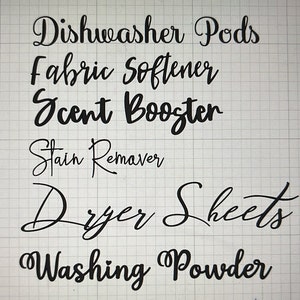 Dishwasher Pods
Fabric Softener
Scent Booster
Stain Remover
Dryer Sheets
Washing Powder